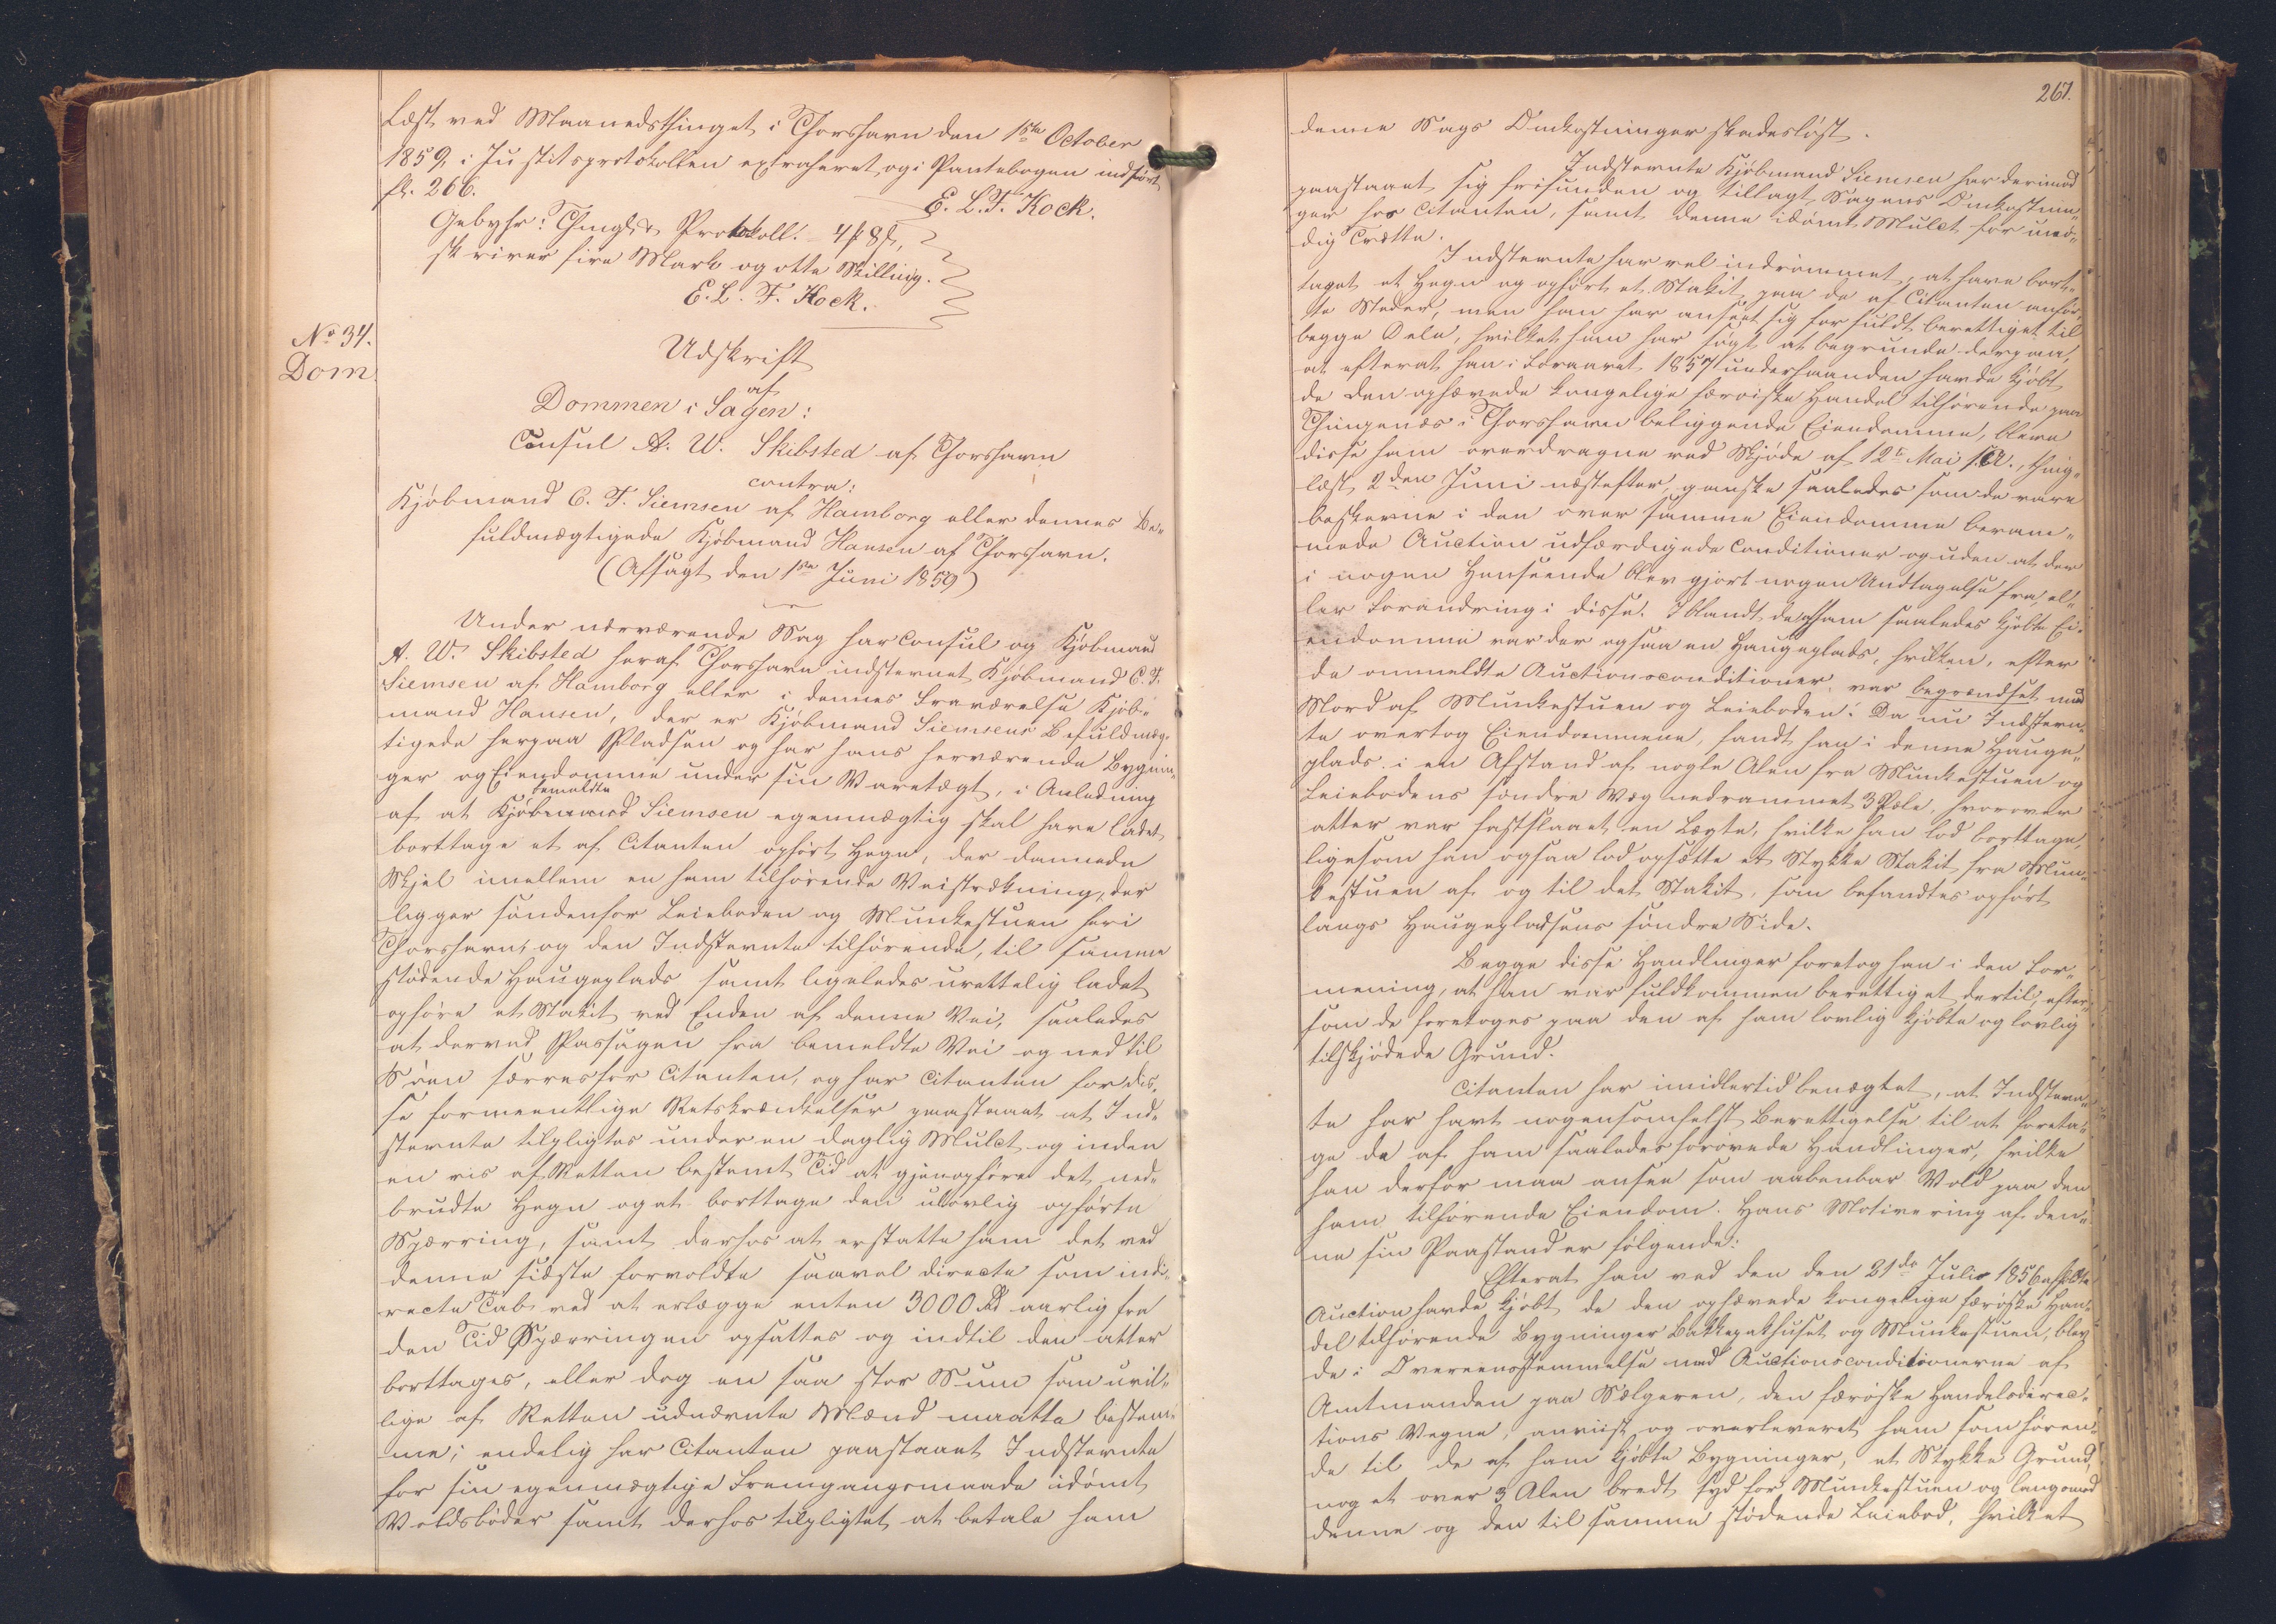 Læst ved Maanedsthinget i Thorshavn den 1ste October
1859, i Justitsprotokollen extraheret, og i Pantebogen indført
fl. 266.
E. L. F. Kock.
Gebyhr: Thingl. & Protokoll: 4 ₰ 8 ß,
skriver fire Mark og otte Skilling.
E. L. F. Kock.
No 34.
Dom
Udskrift
af
Dommen i Sagen:
Consul A. W. Skibsted af Thorshavn
contra:
Kjøbmand C. F. Siemsen af Hamborg eller dennes Be-
fuldmægtigede Kjøbmand Hansen af Thorshavn.
(Afsagt den 1ste Juni 1859)
Under nærværende Sag har Consul og Kjøbmand
A. W. Skibsted heraf Thorshavn indstevnet Kjøbmand C. F.
Siemsen af Hamborg eller i dennes Fraværelse Kjøb-
mand Hansen, der er Kjøbmand Siemsens Befuldmæg-
tigede herpaa Pladsen og har hans herværende Bygnin-
ger og Eiendomme under sin Varetægt, i Anledning
af at bemeldte Kjøbmand Siemsen egenmægtig skal have ladet
borttage et af Citanten opført Hegn, der dannede
Skjel imellem en ham tilhørende Veistrækning, der
ligger søndenfor Leieboden og Munkestuen heri
Thorshavn, og den Indstevnte tilhørende, til samme
stødende Haugeplads samt ligeledes uretteligt ladet
opføre et Stakit ved Enden af denne Vei, saaledes
at derved Passagen fra bemeldte Vei og ned til
Søen spærres for Citanten, og har Citanten for dis-
se formeentlige Retskrænkelser paastaaet at Ind-
stevnte tilpligtes under en daglig Mulct og inden
en vis af Retten bestemt Tid at gjenopføre det ned-
brudte Hegn og at borttage den ulovlig opførte
Spærring, samt derhos at erstatte ham det ved
denne sidste forvoldte saavel directe som indi-
recte Tab ved at erlægge enten 3000 Rd aarlig fra
den Tid Spærringen opsattes og indtil den atter
borttages, eller dog en saa stor Sum som uvil-
lige af Retten udnævnte Mænd maatte bestem-
me; endelig har Citanten paastaaet Indstevnte
for sin egenmægtige Fremgangsmaade idømt
Voldsbøder samt derhos tilpligtet at betale ham
267.
denne Sags Omkostninger skadesløst.
Indstevnte Kjøbmand Siemsen har derimod
paastaaet sig frifunden og tillagt Sagens Omkostnin-
ger hos Citanten, samt denne idømt Mulct for unø-
dig Trætte.
Indstevnte har vel indrømmet, at have bort-
taget et Hegn og opført et Stakit paa de af Citanten anfør-
te Steder, men han har anseet sig for fuldt berettiget til
begge Dele, hvilket han har søgt at begrunde derpaa,
at efterat han i Foraaret 1857 underhaanden havde kjøbt
de den ophævede kongelige færøiske Handel tilhørende paa
Thingenæs i Thorshavn beliggende Eiendomme, bleve
disse ham overdragne ved Skjøde af 12te Mai s. A., thing-
læst 2den Juni næstefter, ganske saaledes som de vare
beskrevne i den over samme Eiendomme beram-
mede Auction udfærdigede Conditioner og uden at der
i nogen Henseende blev gjort nogen Undtagelse fra, el-
ler Forandring i disse. Iblandt de af ham saaledes kjøbte Ei-
endomme var der ogsaa en Haugeplads, hvilken, efter
de ommeldte Auctionsconditioner, var begrændset mod
Nord af Munkestuen og Leieboden: Da nu Indstevn-
te overtog Eiendommene, fandt han i denne Hauge-
plads i en Afstand af nogle Alen fra Munkestuen og
Leiebodens søndre Væg nedrammet 3 Pæle, hvorover
atter var fastslaaet en Lægte, hvilke han lod borttage,
ligesom han ogsaa lod opsætte et Stykke Stakit fra Mun-
kestuen af og til det Stakit, som befandtes opført
langs Haugepladsens søndre Side.
Begge disse Handlinger foretog han i den For-
mening, at han var fuldkommen berettiget dertil, efter-
som de foretoges paa den af ham lovlig kjøbte og lovlig
tilskjødede Grund.
Citanten har imidlertid benægtet, at Indstevn-
te har havt nogensomhelst Berettigelse til at foreta-
ge de af ham saaledes forøvede Handlinger, hvilke
han derfor maa ansee som aabenbar Vold paa den
ham tilhørende Eiendom. Hans Motivering af den-
ne sin Paastand er følgende:
Efterat han ved den den 21de Juli 1856 afholdte
Auction havde kjøbt de den ophævede kongelige færøske Han-
del tilhørende Bygninger Bakkepakhuset og Munkestuen, blev
de i Overeensstemmelse med Auctionsconditionerne af
Amtmanden paa Sælgeren, den færøske Handelsdirec-
tions Vegne, anviist og overleveret ham som høren-
de til de af ham kjøbte Bygninger, et Stykke Grund,
noget over 3 Alen bredt syd for Munkestuen og langsmed
denne og den til samme stødende Leiebod, hvilket